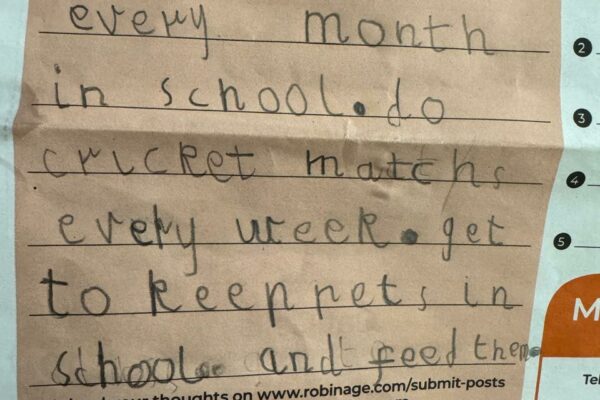 every month
in school. do
cricket matchs
every week. get
to keep pets in
school. and feed them.
your thoughts on www.robinage.com/submit-posts
2
3
4
5
M
Tel